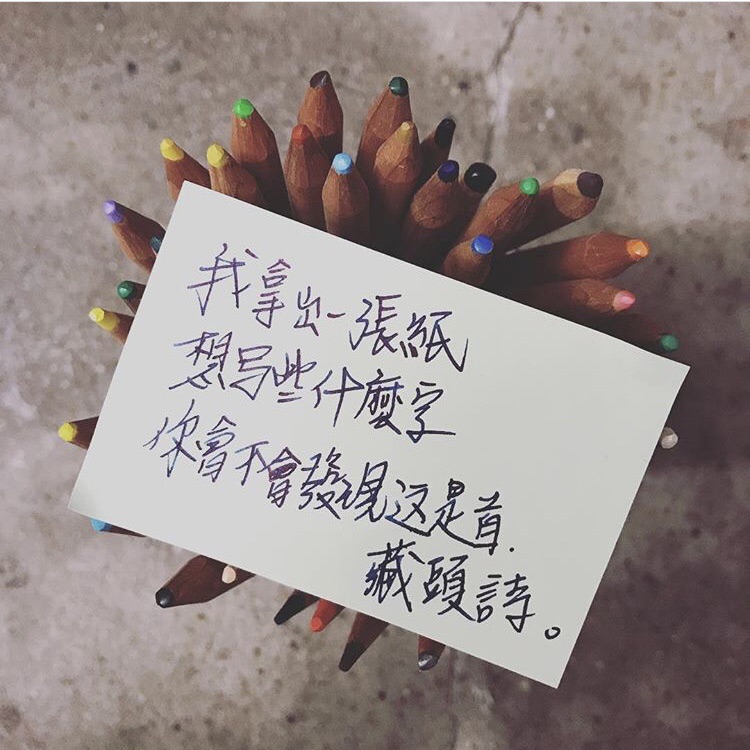 我拿出一張紙
想写些什麼字
你會不會發現这是首.
藏頭詩。